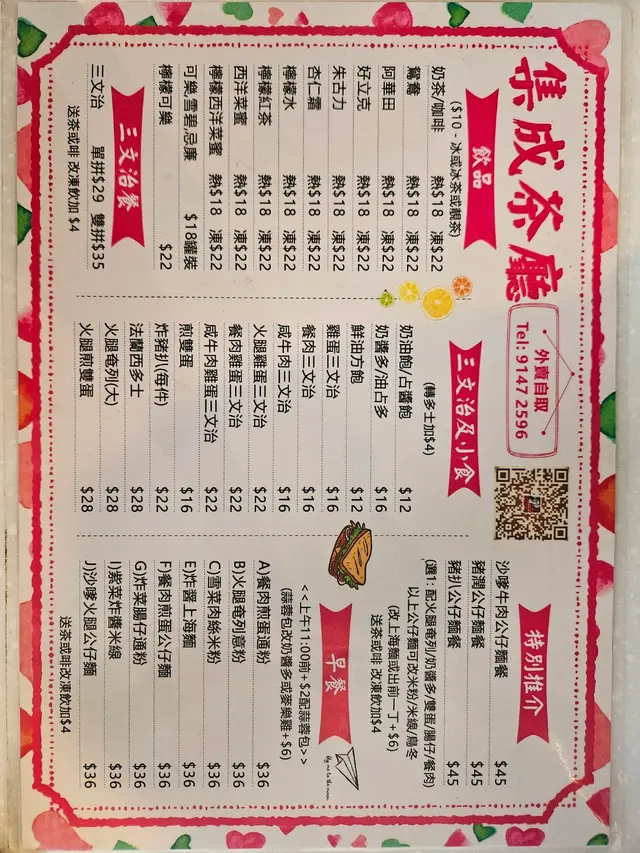 集成茶廳
外賣自取
Tel: 9147 2596
飲品
($10 - 冰或冰茶或靚茶)
奶茶/咖啡 熱$18 凍$22
鴛鴦 熱$18 凍$22
阿華田 熱$18 凍$22
好立克 熱$18 凍$22
朱古力 熱$18 凍$22
杏仁霜 熱$18 凍$22
檸檬水 熱$18 凍$22
檸檬紅茶 熱$18 凍$22
西洋菜蜜 熱$18 凍$22
檸檬西洋菜蜜 熱$18 凍$22
可樂,雪碧,忌廉 $18罐裝
檸檬可樂 $22
三文治餐
三文治 單拼$29 雙拼$35
送茶或啡 改凍飲加 $4
三文治及小食
(轉多士加$4)
奶油飽/占醬飽 $12
奶醬多/油占多 $16
鮮油方飽 $12
雞蛋三文治 $16
餐肉三文治 $16
咸牛肉三文治 $16
火腿雞蛋三文治 $22
餐肉雞蛋三文治 $22
咸牛肉雞蛋三文治 $22
煎雙蛋 $16
炸豬扒(每件) $22
法蘭西多士 $22
火腿奄列(大) $28
火腿煎雙蛋 $28
特別推介
沙嗲牛肉公仔麵餐 $45
豬潤公仔麵餐 $45
豬扒公仔麵餐 $45
(選1: 配火腿奄列/奶醬多/雙蛋/腸仔/餐肉)
以上公仔麵可改米粉/米線/烏冬
(改上海麵或出前一丁+$6)
送茶或啡 改凍飲加$4
早餐
Fly me to the moon
<<上午11:00前+$2配蒜蓉包>>
(蒜蓉包改奶醬多或麥樂雞+$6)
A)餐肉煎蛋通粉 $36
B)火腿奄列意粉 $36
C)雪菜肉絲米粉 $36
E)炸醬上海麵 $36
F)餐肉煎蛋公仔麵 $36
G)炸菜腸仔通粉 $36
I)紫菜炸醬米線 $36
J)沙嗲火腿公仔麵 $36
送茶或啡改凍飲加$4